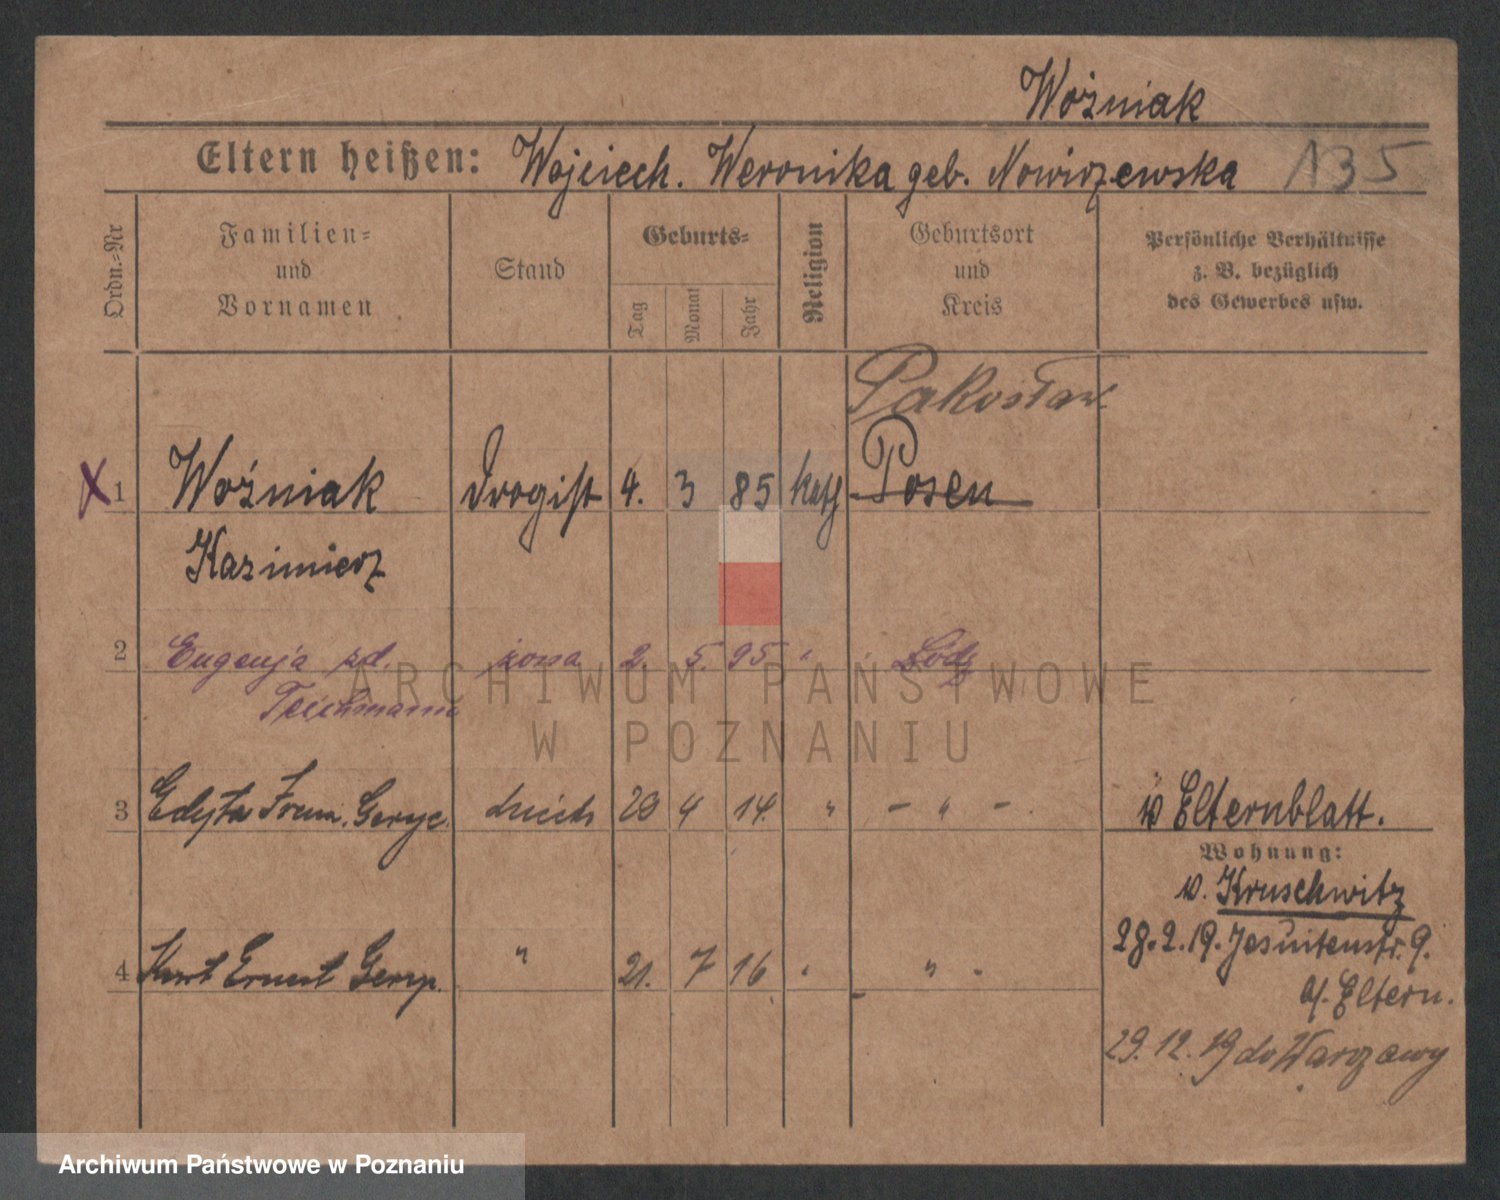 Woźniak
Eltern heißen: Wojciech. Weronika geb. Nowiczewska
135
Ordn.-Nr
Familien-
und
Vornamen
Stand
Geburts-
Tag
Monat
Jahr
Religion
Geburtsort
und
Kreis
Persönliche Verhältnisse
z. B. bezüglich
des Gewerbes usw.
Pakosław
X 1 Woźniak Drogist 4. 3 85 kath Posen
Kazimierz
2 Eugenja zd. żona 2. 5. 95 " Łódz
Teichmann
3 Edyta 4 14. " - " -
ü Elternblatt.
Wohnung:
v. Kruschwitz
28.2.19. Jesuitenstr. 9.
b/. Eltern.
4 Kurt Ernest " 21. 7 16 " "
29.12.19 do Warszawy
ARCHIWUM PAŃSTWOWE
W POZNANIU
Archiwum Państwowe w Poznaniu